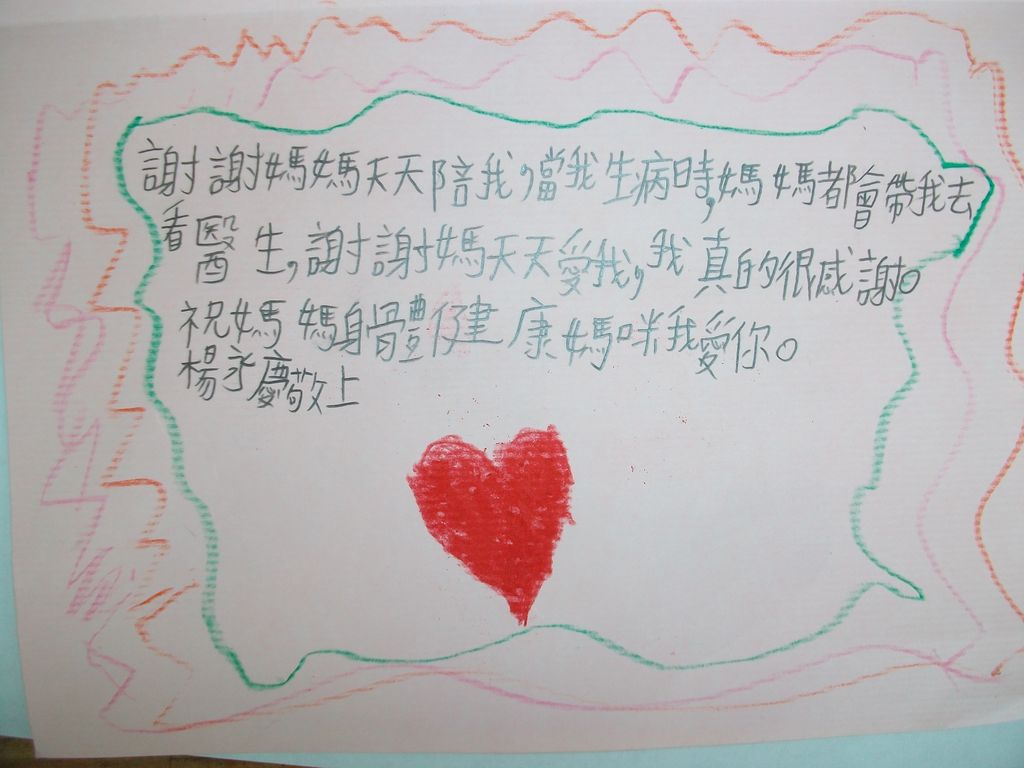 謝謝媽媽天天陪我，當我生病時，媽媽都會帶我去
看醫生，謝謝媽天天愛我，我真的很感謝。
祝媽媽身體健康媽咪我愛你。
楊永慶敬上